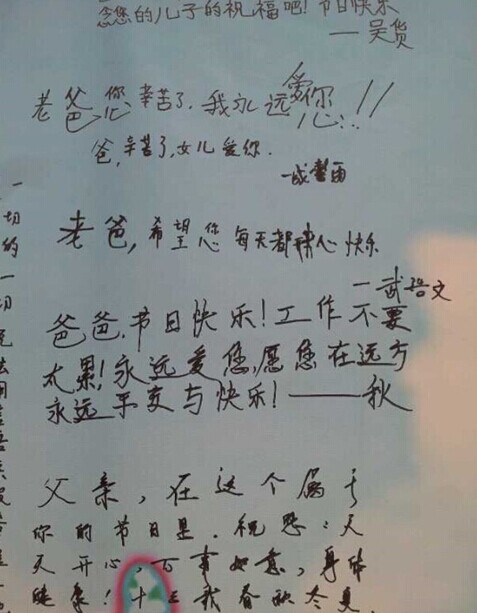 念您的儿子的祝福吧！节日快乐
—吴货
老爸您辛苦了，我永远爱你!!
爸，辛苦了，女儿爱你．
老爸，希望您每天都开心快乐
爸爸．节日快乐！工作不要
太累！永远爱您，愿您在远方
永远平安与快乐！——秋
父亲，在这个属于
你的节日里．祝愿：天
天开心，万事如意，身体
健康！十三我春秋冬夏
一
切
的
一
切